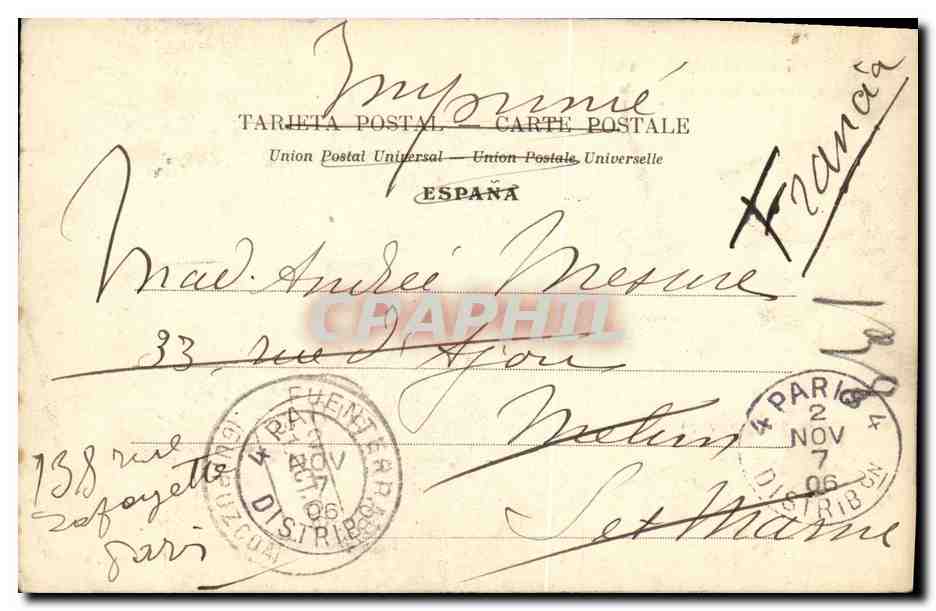 Imprimé
TARJETA POSTAL — CARTE POSTALE
Union Postal Universal — Union Postale Universelle
ESPAÑA
Francia
Mad. André Mesure
33 rue d'Ajou
Melun
S et Marne
138 rue
Lafayette
Paris
FUENTERRABIA
(GUIPUZCOA)
4 PA
NOV
7
06
DISTRIBON
4 PARIS 4
2
NOV
7
06
DISTRIBON
CPAPHIL